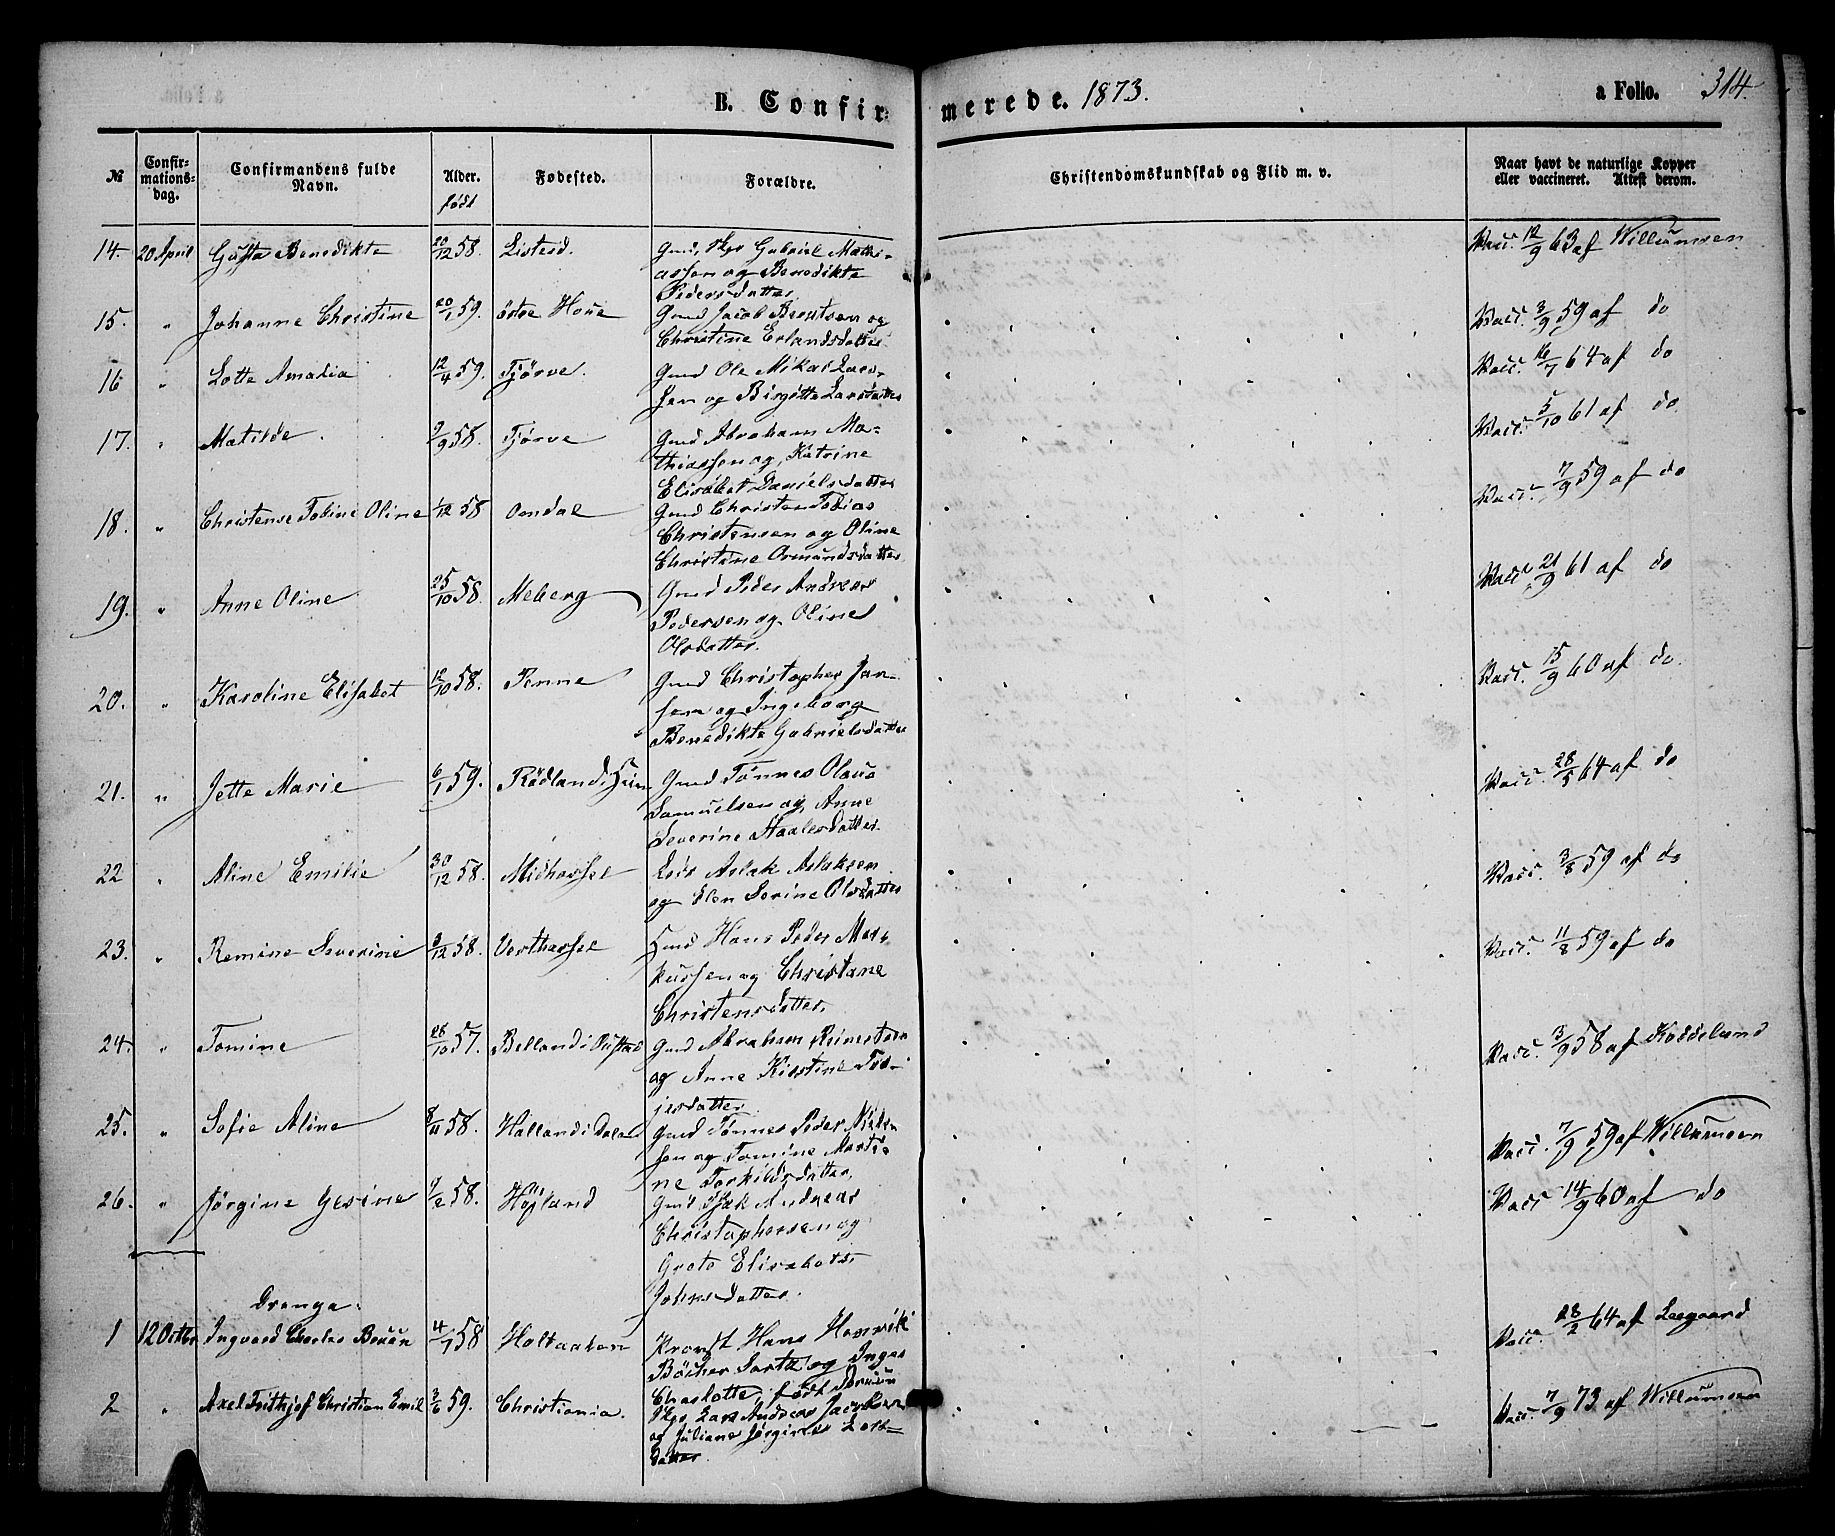 B. Confirmerede. 1873. a Folio. 314.
№ Confirmationsdag. Confirmandens fulde Navn. Alder. født Fødested. Forældre. Christendomskundskab og Flid m. v. Naar havt de naturlige Kopper eller vaccineret. Attest derom.
14. 20 April Gusta Benedikte 20/12 58. Listeid. Gmd, Skp Gabriel Mathi- Vacc. 12/9 63 af Willumsen
assen og Benedikte
Pedersdatter
15. " Johanne Christine 20/1 59. østre Houe Gmd Jacob Berntsen og Vacc. 3/9 59 af do
Christine Erlandsdatter
16 " Lotte Amalia 12/4 59. Tjørve. Gmd Ole Mikal Lar- Vacc. 16/7 64 af do
sen og Birgitte Larsdatter
17. " Matilde 2/9 58. Tjørve Gmd Abraham Ma- Vacc. 5/10 61 af do
thiassen og Katrine
Elisabet Danielsdatter
18. " Christense Tobine Oline 1/12 58 Omdal Gmd Christen Tobias Vacc. 7/9 59 af do
Christensen og Oline
Christine Omundsdatter
19. " Anne Oline 25/10 58. Meberg Gmd Peder Andreas Vacc. 21/9 61 af do
Pedersen og Oline
Olsdatter.
20. " Karoline Elisabet 12/10 58. Penne Gmd Christopher Jan- Vacc. 15/9 60 af do.
sen og Ingeborg
Benedikte Gabrielsdatter
21. " Jette Marie 6/1 59. Rødland i Hun Gmd Tønnes Olaus Vacc. 28/5 64 af do
Samuelsen og Anne
Severine Staalesdatter
22 " Aline Emilie 30/12 58. Midhassel Leds Aslak Aslaksen Vacc. 3/8 59 af do
og Elen Serine Olsdatter
23. " Remine Severine 3/12 58. Vesthassel Hmd Hans Peder Mar- Vacc. 11/8 59 af do
kussen og Christane
Christensdatter.
24. " Tomine 28/10 57. Belland i Gmd Abraham Reinertsen Vacc. 3/9 58 af Koddeland
og Anne Kistine Tor-
jesdatter
25. " Sofie Aline 8/11 58. Halland i Gmd Tønnes Peder Niel- Vacc. 7/9 59 af Willumsen
sen og Tomine Marti-
ne Torkildsdatter,
26. " Jørgine Gesine 7/2 58. Højland Gmd Isak Andreas Vacc 14/9 60 af do
Christophersen og
Grete Elisabeth
Johnsdatter.
Drenge.
1 12 Octbr Ingvard Charles Bruun 4/1 58 Holtaaben Provst Hans Henrik Vacc. 28/2 64 af Leegaard
Böcher og Inger
Charlotte, født Bruun
2 " Axel Frithjof Christian Emil 3/6 59. Christiania. Skp. Lars Andreas Jacobsen Vacc. 7/9 73 af Willumsen
og Juliane Jørgine
datter